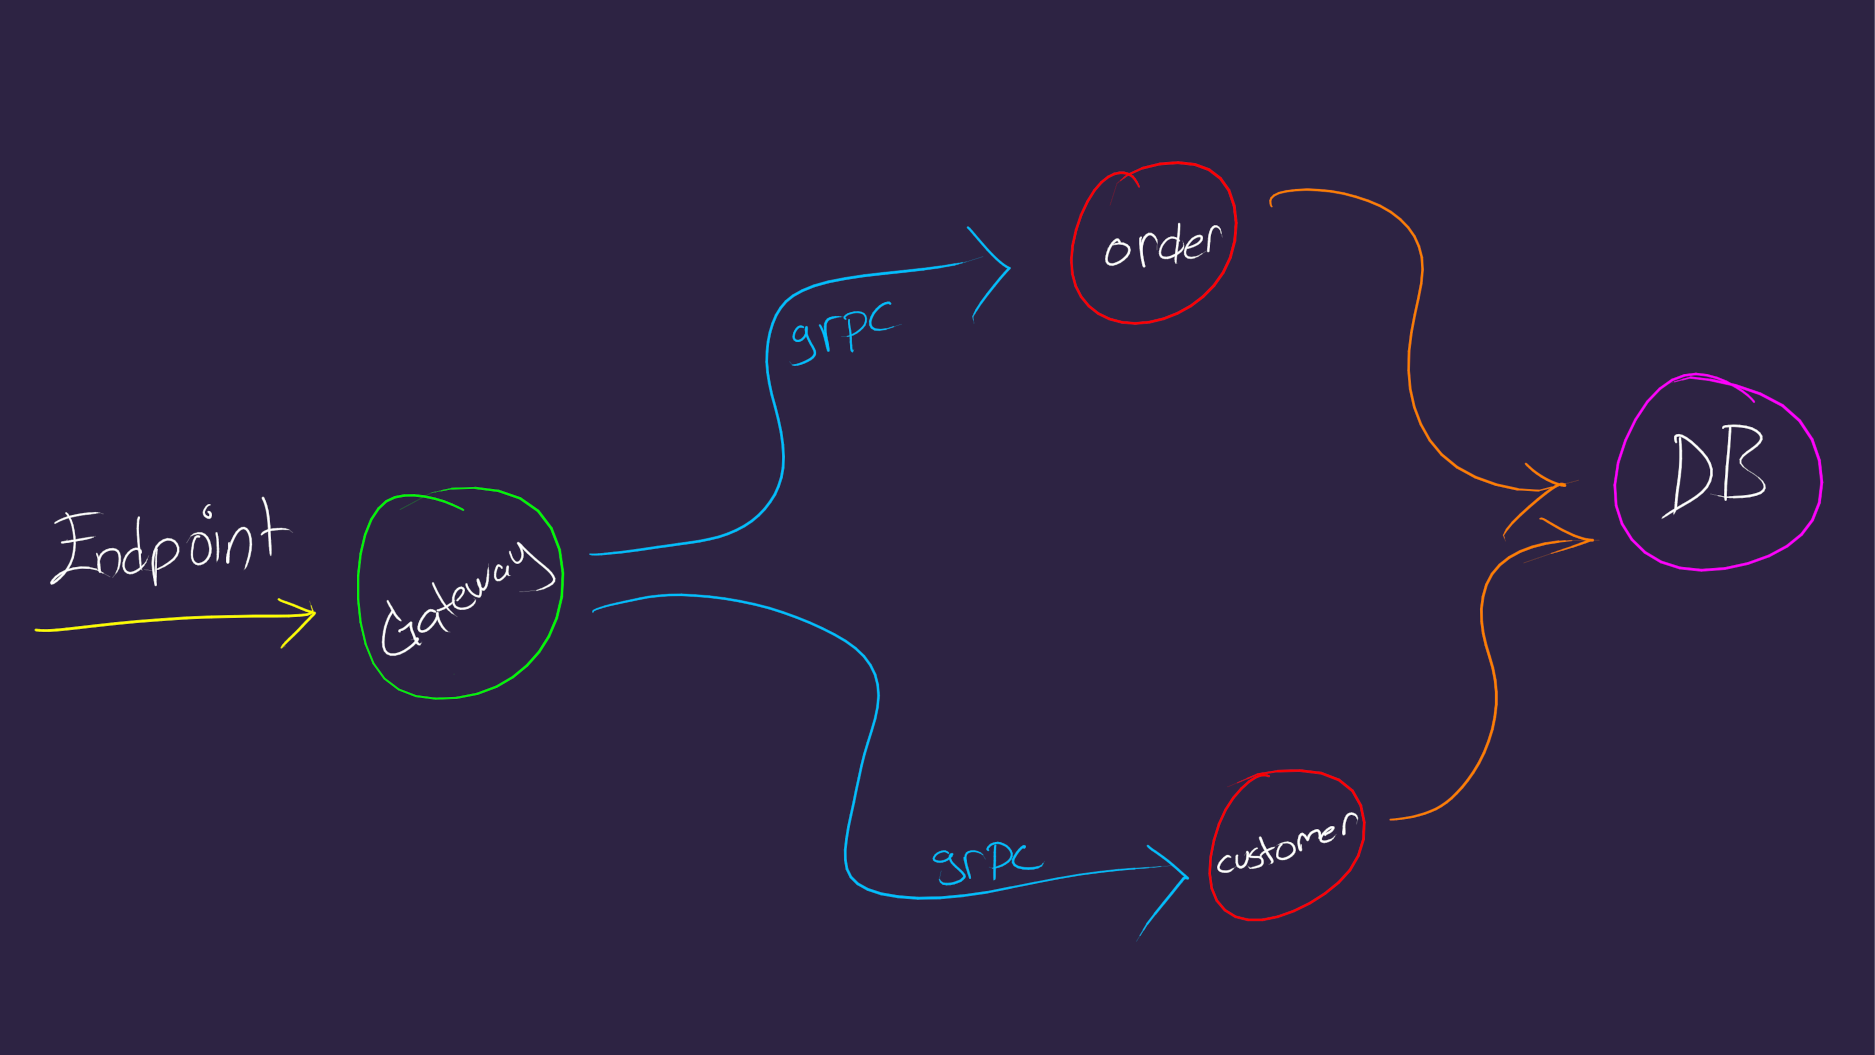 Endpoint
Gateway
grpc
order
grpc
customer
DB